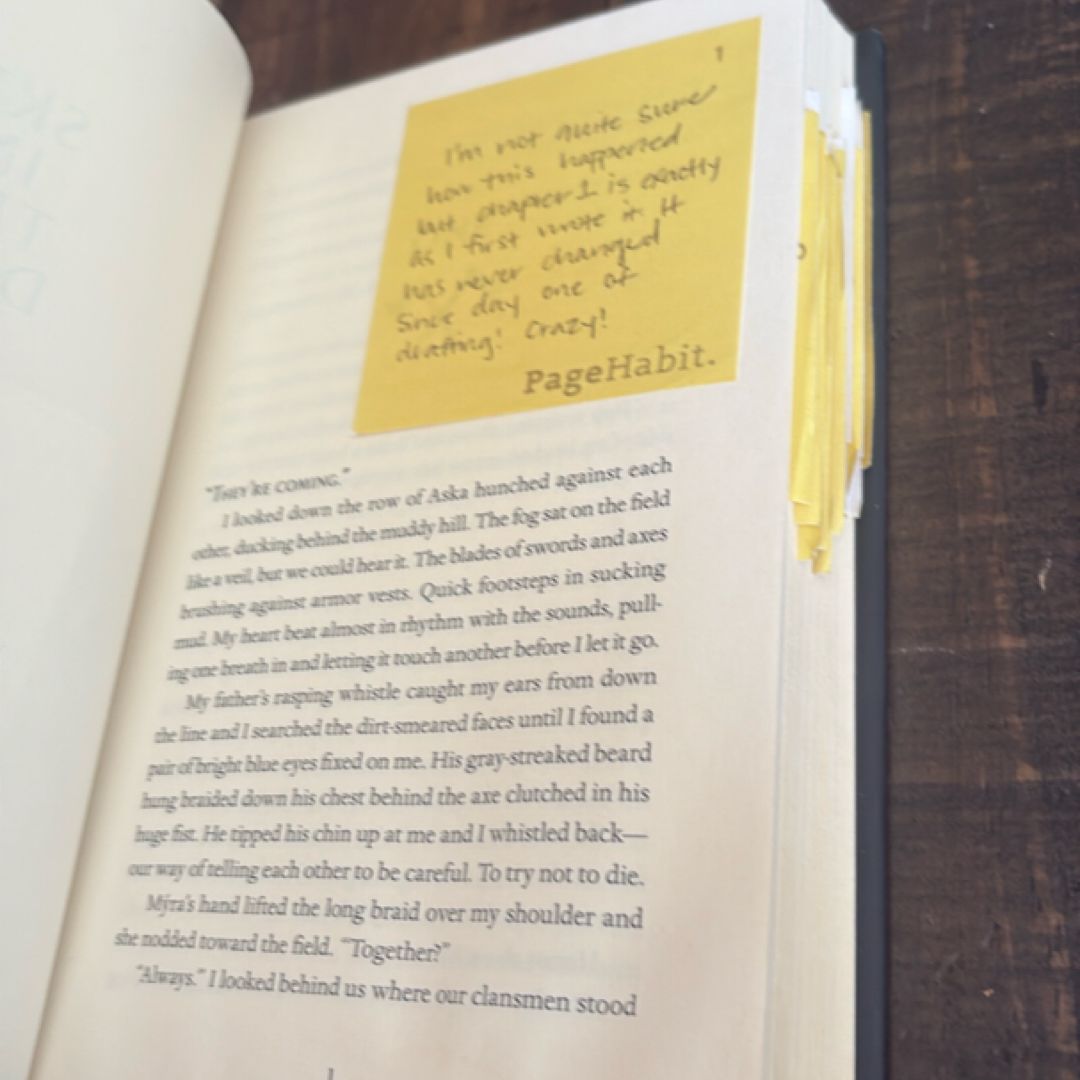 1
I'm not quite sure
how this happened
but chapter 1 is exactly
as I first wrote it. It
has never changed
since day one of
drafting! Crazy!
PageHabit.
"THEY'RE COMING."
I looked down the row of Aska hunched against each
other, ducking behind the muddy hill. The fog sat on the field
like a veil, but we could hear it. The blades of swords and axes
brushing against armor vests. Quick footsteps in sucking
mud. My heart beat almost in rhythm with the sounds, pull-
ing one breath in and letting it touch another before I let it go.
My father's rasping whistle caught my ears from down
the line and I searched the dirt-smeared faces until I found a
pair of bright blue eyes fixed on me. His gray-streaked beard
hung braided down his chest behind the axe clutched in his
huge fist. He tipped his chin up at me and I whistled back—
our way of telling each other to be careful. To try not to die.
Mýra's hand lifted the long braid over my shoulder and
she nodded toward the field. "Together?"
"Always." I looked behind us where our clansmen stood